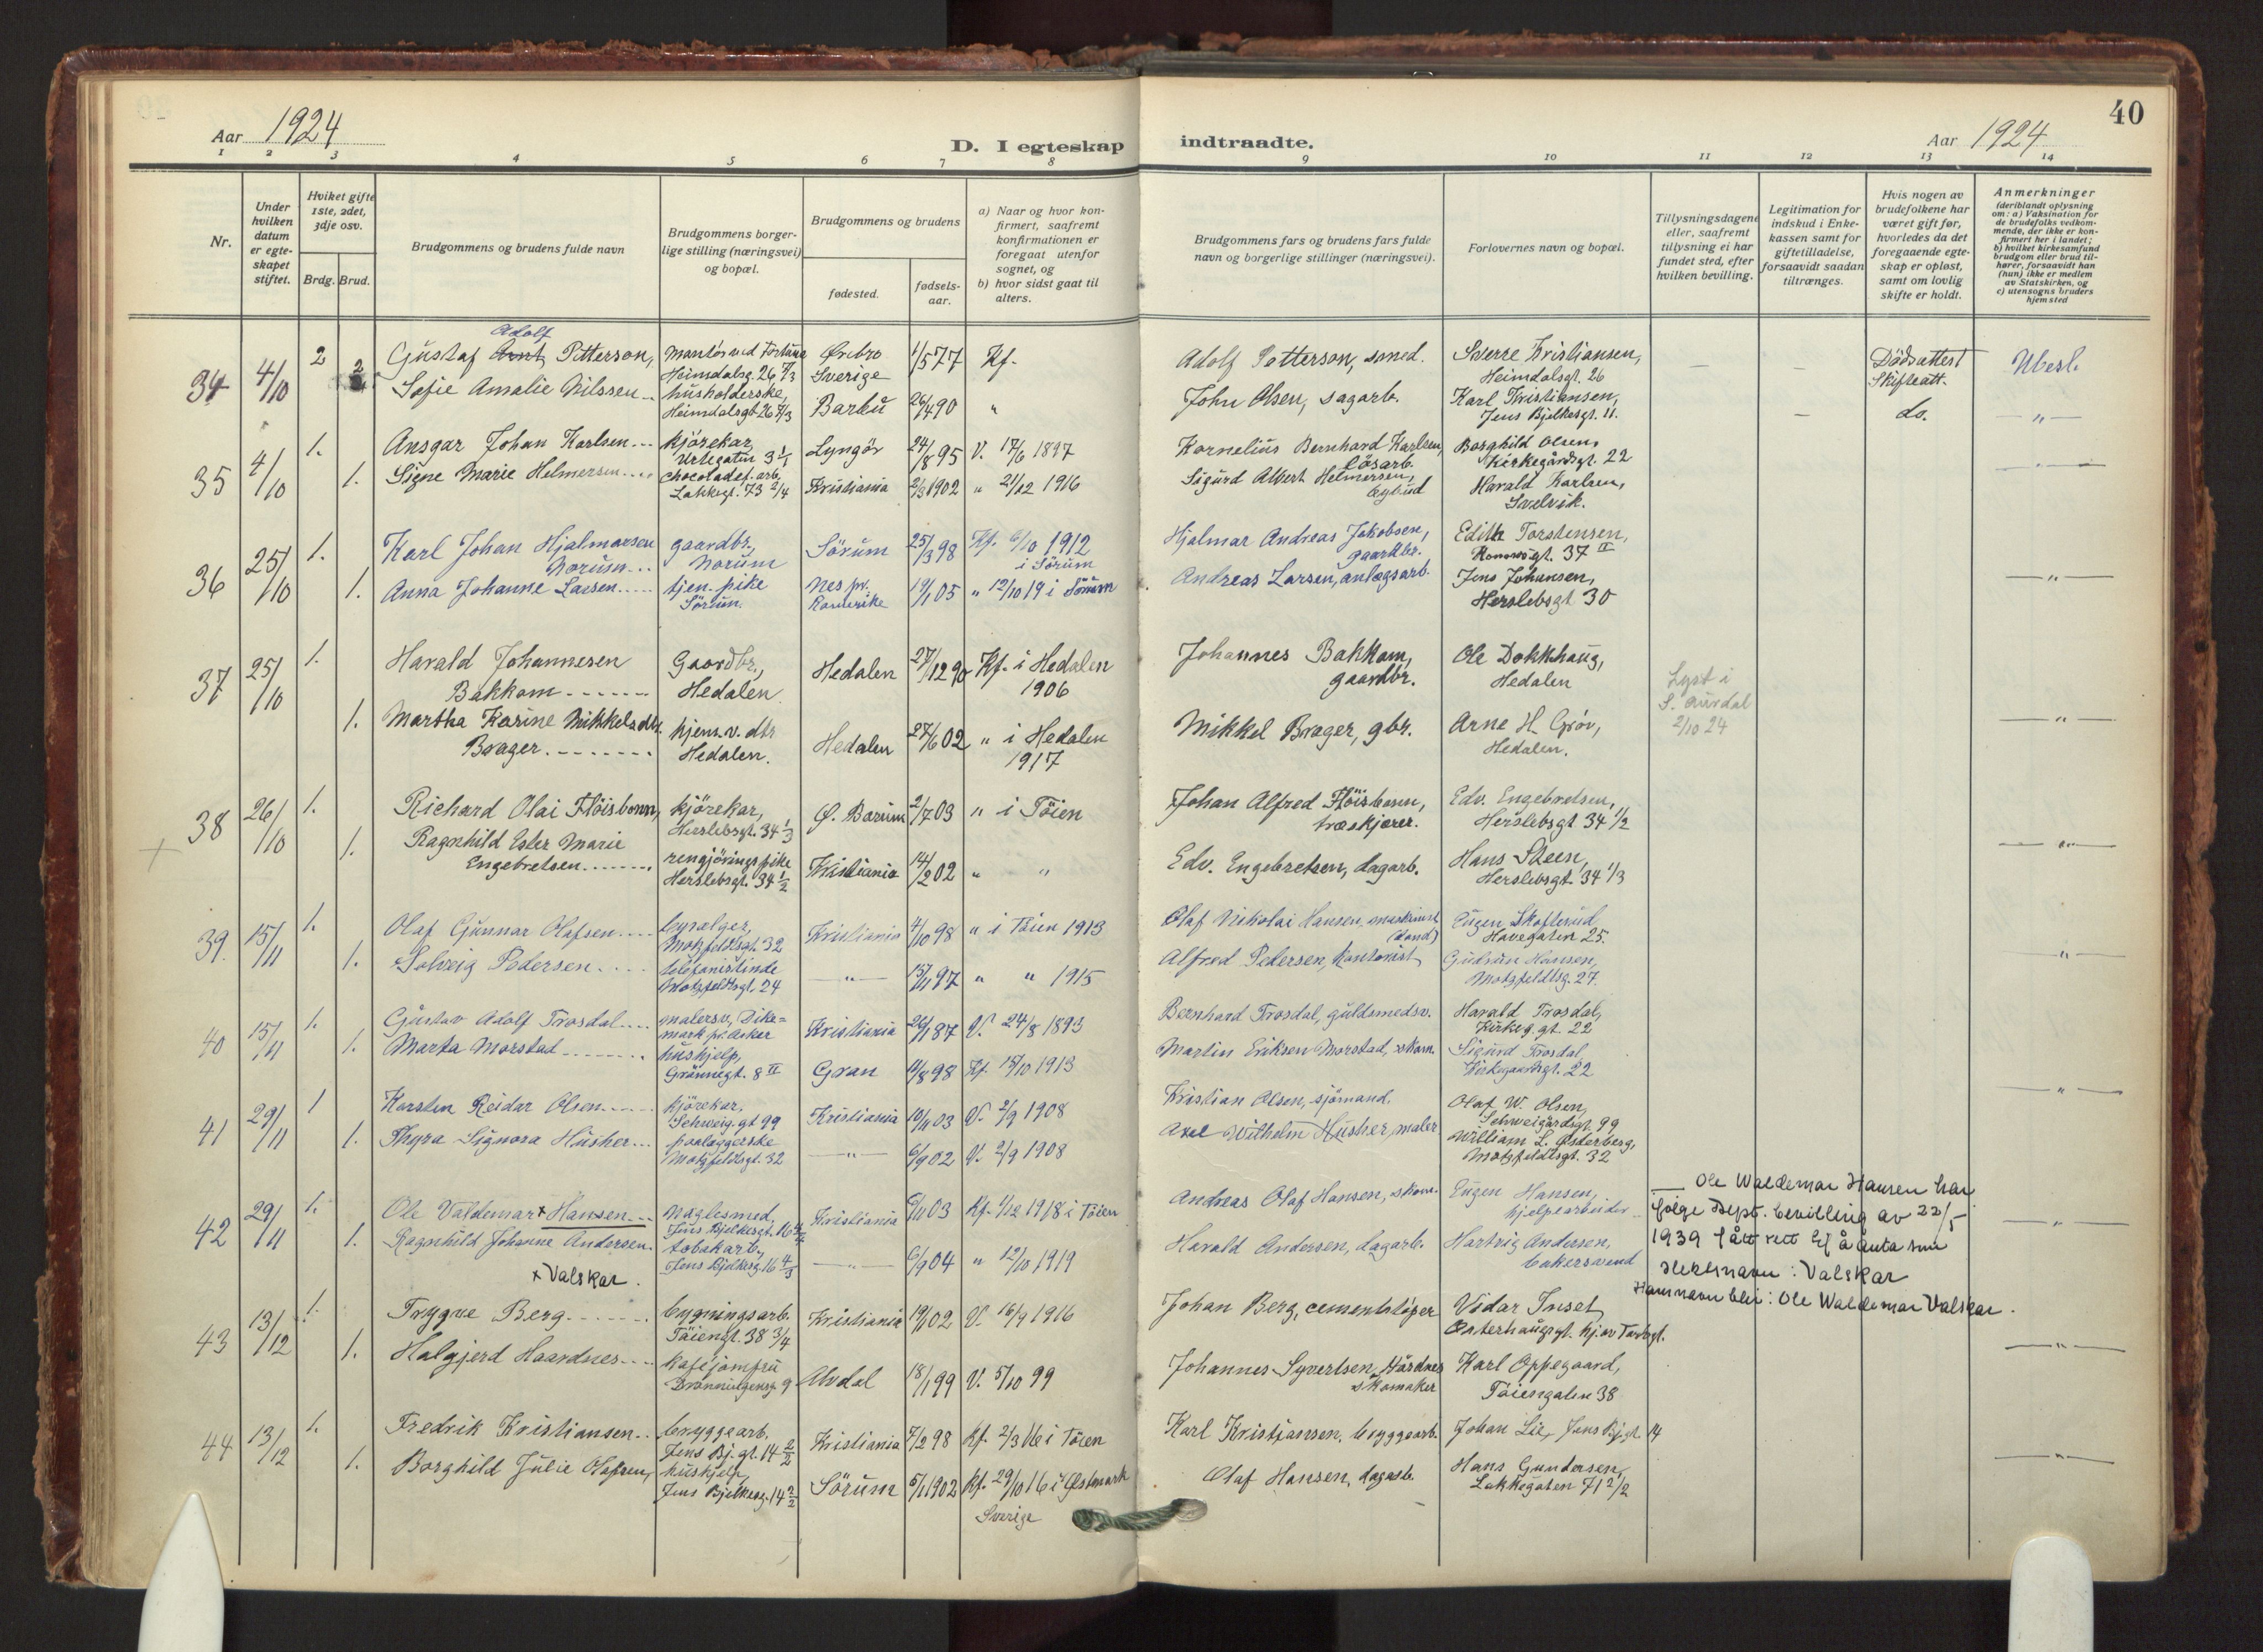 40
Aar 1924
D. I egteskap indtraadte.
Aar 1924
1 2 3 4 5 6 7 8 9 10 11 12 13 14
Nr.
Under hvilken datum er egteskapet stiftet.
Hviket gifte 1ste, 2det, 3dje osv.
Brdg. Brud.
Brudgommens og brudens fulde navn
Brudgommens borgerlige stilling (næringsvei) og bopæl.
Brudgommens og brudens
fødested.
fødselsaar.
a) Naar og hvor konfirmert, saafremt konfirmationen er foregaat utenfor sognet, og
b) hvor sidst gaat til alters.
Brudgommens fars og brudens fars fulde navn og borgerlige stillinger (næringsvei).
Forlovernes navn og bopæl.
Tillysningsdagene eller, saafremt tillysning ei har fundet sted, efter hvilken bevilling.
Legitimation for indskud i Enkekassen samt for giftetilladelse, forsaavidt saadan tiltrænges.
Hvis nogen av brudefolkene har været gift før, hvorledes da det foregaaende egteskap er opløst, samt om lovlig skifte er holdt.
Anmerkninger (deriblandt oplysning om: a) Vaksination for de brudefolks vedkommende, der ikke er konfirmert her i landet; b) hvilket kirkesamfund brudgom eller brud tilhører, forsaavidt han (hun) ikke er medlem av Statskirken, og c) utensogns bruders hjemsted
34 4/10 2 2
Adolf
Gustaf Arnt Petterson, Heimdalsg. 26 Örebro Sverige 1/5 77 Kf. Adolf Petterson, smed. Sverre Kristiansen, Heimdalsgt. 26 Dødsattest Skifteatt. Ubesl.
Sofie Amalie Nilssen husholderske, Heimdalsgt 26 Barbu 26/4 90 " John Olsen, sagarb. Karl Kristiansen, Jens Bjelkesgt. 11. do. "
35 4/10 1. 1.
Ansgar Johan Karlsen kjørekar, Urtegatin 3 Lyngör 24/8 95 V. 17/6 1897 Kornelius Bernhard Karlsen, løsarb. Borghild Olsen, Kirkegårdsgt. 22
Signe Marie Helmersen chocoladef. arb, Lakkegt. 73 2/4 Kristiania 2/3 1902 " 21/12 1916 Sigurd Albert Helmersen, bybud Harald Karlsen, Svelvik.
36 25/10 1. 1.
Karl Johan Hjalmarsen Norum gaardbr., Norum Sörum 25/3 98 Kf. 6/10 1912 i Sörum Hjalmar Andreas Jakobsen, gaardbr. Edith Torstensen, 37 II
Anna Johanne Larsen tjen. pike Sörum. Nes pr. Romerike 19/1 05 " 12/10 19 i Sörum Andreas Larsen, anlægsarb. Jens Johansen, Herslebsgt 30
37 25/10 1. 1.
Harald Johannesen Bakkom Gaardbr., Hedalen 27/12 90 Kf. i Hedalen 1906 Johannes Bakkom, gaardbr. Ole Dokkhaug, Hedalen Lyst i S. Aurdal 2/10 24
Martha Karine Mikkelsdtr. Brager hjem.v. dtr Hedalen. Hedalen 27/6 02 " i Hedalen 1917 Mikkel Brager, gbr. Arne H. Grøv, Hedalen.
38 26/10 1. 1.
Richard Olai Fløisbonn, kjörekar, Herslebsgt. 34 1/3 Ø. Bærum 2/7 03 " i Töien Johan Alfred Fløisbonn, træskjærer. Edv. Engebretsen, Herslebsgt. 34 1/2
Ragnhild Ester Marie Engebretsen rengjöringspike Herslebsgt. 34 1/2 Kristiania 14/2 02 " " Edv. Engebretsen, dagarb. Hans Skeen, Herslebsgt. 34 1/3
39. 15/11 1. 1.
Olaf Gunnar Olafsen Motzfeldtsgt. 32 Kristiania 4/10 98 " i Töien 1913 Olaf Nikolai Hansen, maskinist (död) Eugen Skofterud Havegaten 25.
Solveig Pedersen telefonistinde Motzfeldtsgt. 24 " 15/11 97 " " 1915 Alfred Pedersen, Kontorist Gudrun Hansen, Motzfeldtsg. 27.
40 15/11 1. 1.
Gustav Adolf Trosdal malersv., Dikemark pr. Asker Kristiania 26/1 87 V. 24/8 1893 Bernhard Trosdal, guldsmedsv. Harald Trosdal, Kirkeg. gt. 22
Marta Morstad hushjelp, Grönnegt. 8 II Gran 11/8 98 Kf. 15/10 1913 Martin Eriksen Morstad, skom. Sigurd Trosdal, Kirkegaardsgt. 22
41 29/11 1 1.
Karsten Reidar Olsen kjörekar, Schweig. gt 99 Kristiania 10/11 03 V. 2/9 1908 Kristian Olsen, sjömand. Olaf W. Olsen, Schweigårdsgt. 99
Thyra Signora Husher paalæggerske Motzfeldtsgt. 32 " 6/9 02 V. 2/9 1908 Axel Wilhelm Husher, maler William L. Østerberg, Motzfeldtsgt. 32
42 29/11 1. 1.
Ole Valdemar x Hansen naglesmed, Jens Bjelkesgt. 16 Kristiania 6/11 03 Kf. 1/12 1918 i Töien Andreas Olaf Hansen, skom. Eugen Hansen, hjelpearbeider
Ragnhild Johanne Andersen. tobakarb, Jens Bjelkesg. 16 4/3 " 6/9 04 " 12/10 1919 Harald Andersen, dagarb. Hartvig Andersen, bakersvend
x Valskar.
Ole Waldemar Hansen har
ifølge Dept. bevilling av 22/5
1939 fått rett til å anta som
slektsnavn: Valskar
Hans navn blir: Ole Waldemar Valskar.
43 13/12 1. 1.
Trygve Berg bygningsarb. Töiengt. 38 3/4 Kristiania 19/11 02 V. 16/9 1916 Johan Berg, cementstöper Vidar Inset Østerhaugsgt. hj. av Tordsgt.
Halgjerd Haardnes kaféjomfru Dronningensg 9 Alvdal 18/1 99 V. 5/10 99 Johannes Syvertsen Hårdnes skomaker Karl Oppegaard, Töiengaten 38
44 13/12 1. 1.
Fredrik Kristiansen bryggearb. Jens Bj. gt. 14 2/2 Kristiania 7/2 98 Kf. 2/3 i Töien Karl Kristiansen, bryggearb. Johan Lie, Jens Bj.gt. 14
Borghild Julie Olafsen, hushjelp, Jens Bjelkesg. 14 2/2 Sörum 5/1 1902 Kf. 29/10 16 i Østmark Sverige Olaf Hansen, dagarb. Hans Gundersen, Lakkegaten 71 2/2